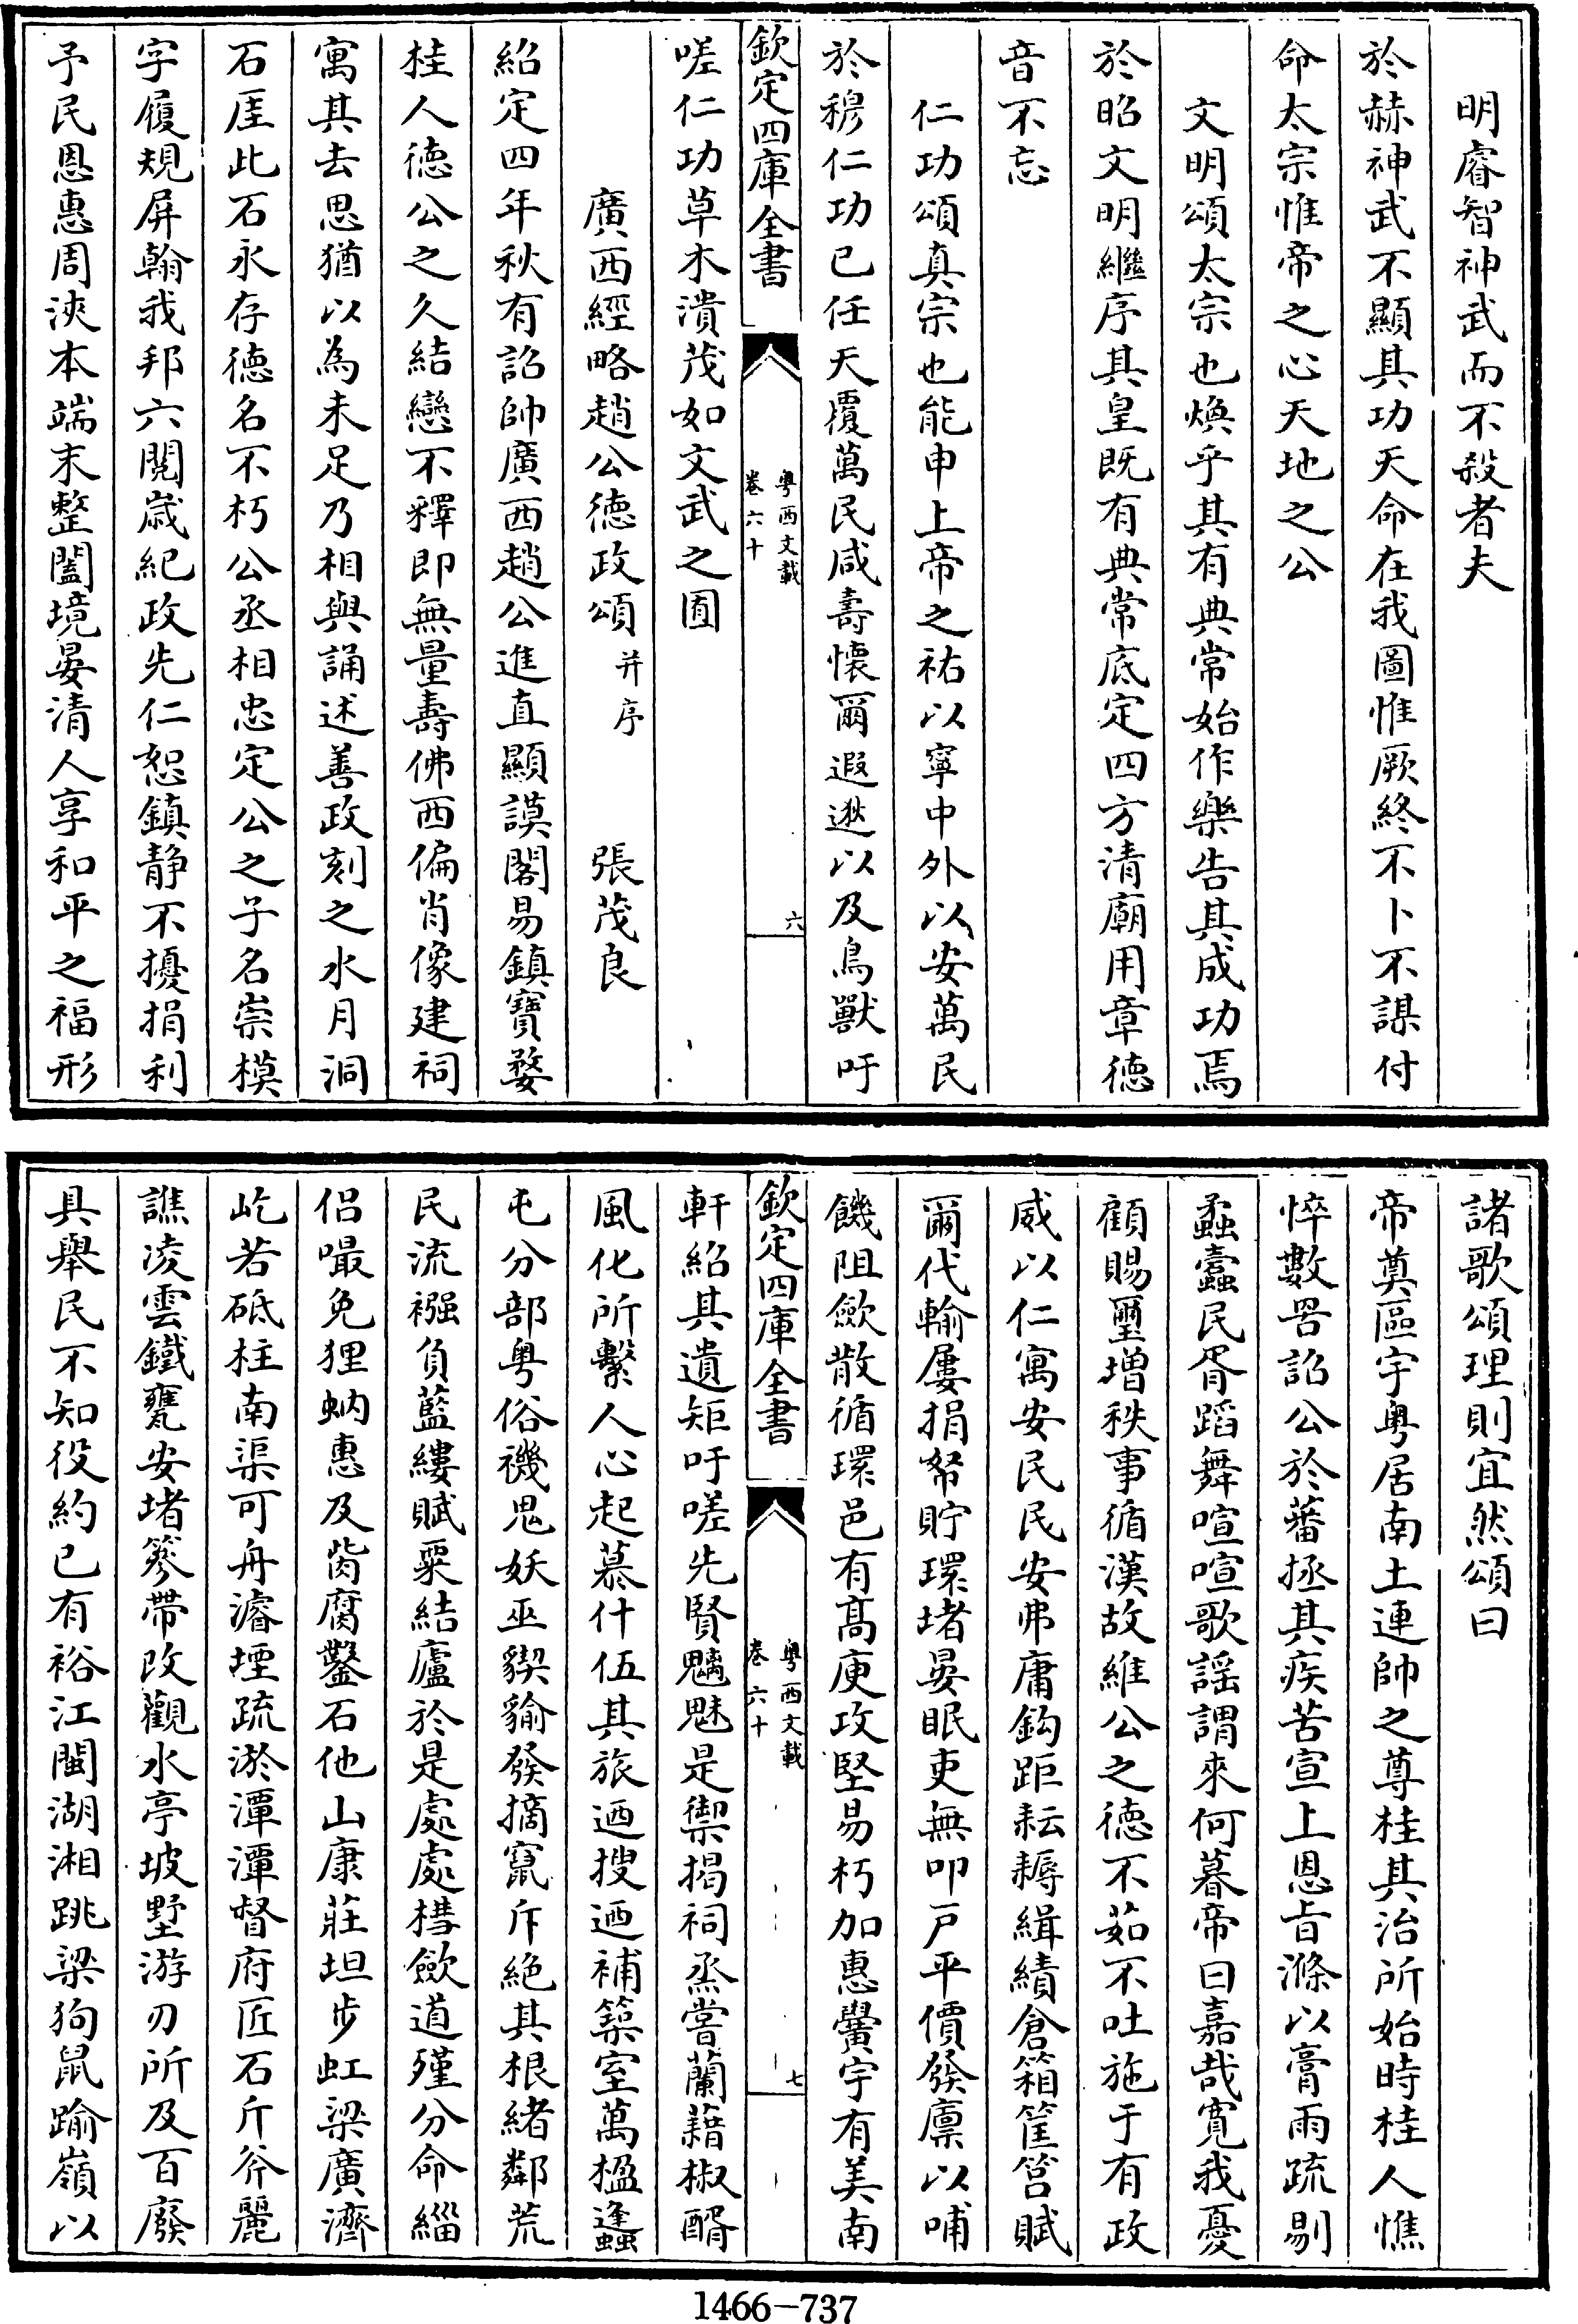 明睿智神武而不殺者夫
於赫神武不顯其功天命在我圖惟厥終不卜不謀付
命太宗惟帝之心天地之公
文明頌太宗也煥乎其有典常始作樂告其成功焉
於昭文明繼序其皇既有典常底定四方清廟用章德
音不忘
仁功頌真宗也能申上帝之祐以寧中外以安萬民
於穆仁功已任天覆萬民咸壽懷爾遐逖以及鳥獸吁
欽定四庫全書
粤西文載
卷六十
六
嗟仁功草木潰茂如文武之囿
廣西經略趙公德政頌并序 張茂良
紹定四年秋有詔帥廣西趙公進直顯謨閣易鎮寶婺
桂人德公之久結戀不釋即無量壽佛西偏肖像建祠
寓其去思猶以為未足乃相與誦述善政刻之水月洞
石厓此石永存德名不朽公丞相忠定公之子名崇模
字履規屏翰我邦六閱歲紀政先仁恕鎮静不擾捐利
予民恩惠周浹本端末整闔境晏清人享和平之福形
諸歌頌理則宜然頌曰
帝奠區宇粤居南土連帥之尊桂其治所始時桂人憔
悴數罟詔公於蕃拯其疾苦宣上恩旨滌以膏雨疏剔
蟊蠹民胥蹈舞喧喧歌謡謂來何暮帝曰嘉哉寛我憂
顧賜璽增秩事循漢故維公之德不茹不吐施于有政
威以仁寓安民民安弗庸鈎距耘耨緝績倉箱筐筥賦
爾代輸屢捐帑貯環堵晏眠吏無叩戸平價發廪以哺
饑阻歛散循環邑有髙庾攻堅易朽加惠黌宇有美南
欽定四庫全書
粤西文載
卷六十
七
軒紹其遺矩吁嗟先賢魑魅是禦揭祠烝嘗蘭藉椒醑
風化所繫人心起慕什伍其旅迺搜迺補築室萬楹蠭
屯分部粤俗禨鬼妖巫猰貐發摘竄斥絶其根緒鄰荒
民流襁負藍縷賦粟結廬於是處處槥歛道殣分命緇
侣嘬免狸蚋惠及胔腐鑿石他山康莊坦歩虹梁廣濟
屹若砥柱南渠可舟濬堙疏淤潭潭督府匠石斤斧麗
譙凌雲鐵甕安堵篸帶改觀水亭坡墅游刃所及百廢
具舉民不知役約已有裕江閩湖湘跳梁狗鼠踰嶺以
1466—737